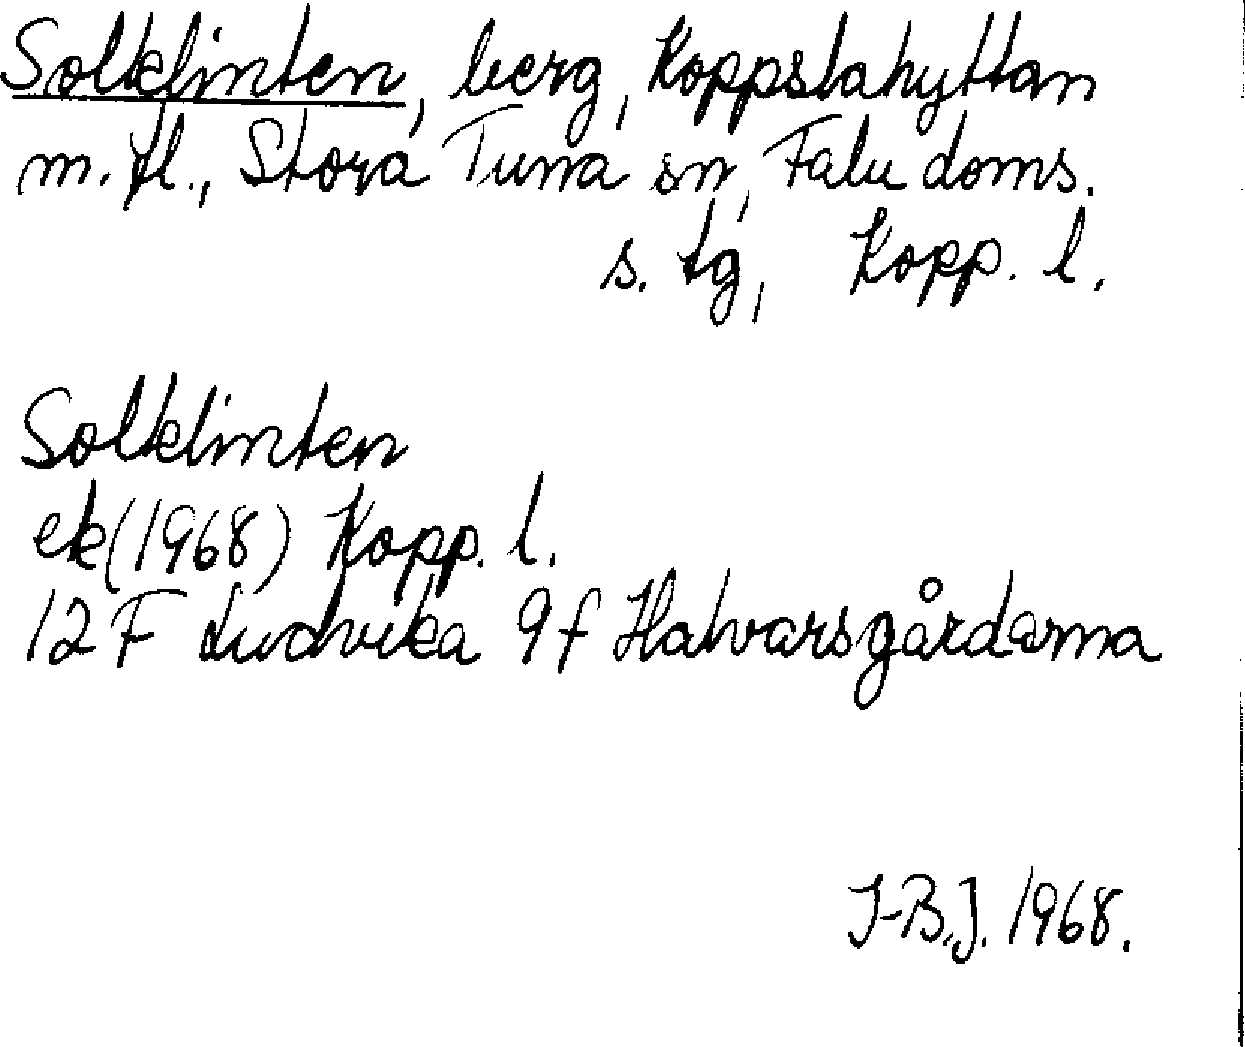 Solklinten, berg, Koppstahyttan
m. fl., Stora Tuna sn, Falu doms.
s. tg, Kopp. l.
Solklinten
ek (1968) Kopp. l.
12 F Ludvika 9f Halvarsgårdarna
I-B.J. 1968.